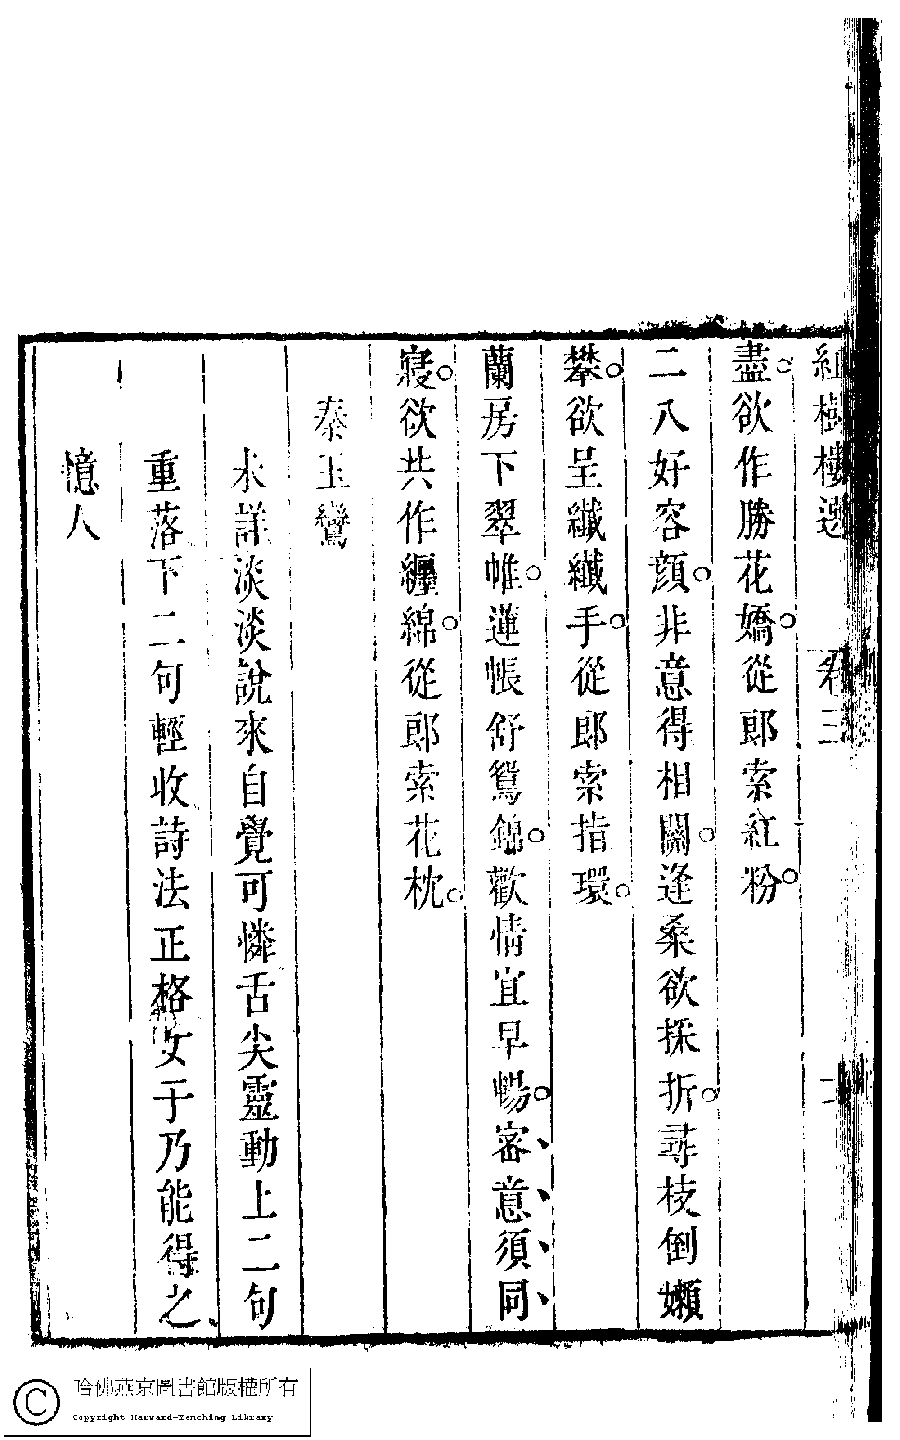 紅樹樓選 卷三
盡欲作勝花嬌從郎索紅粉
二八好容顏非意得相關逢桑欲採折尋枝倒嬾
攀欲呈纖纖手從郎索指環
蘭房下翠帷蓮帳舒鴛錦歡情宜早暢審意須同
寢欲共作纏綿從郎索花枕
秦玉鸞
未詳淡淡說來自覺可憐舌尖靈動上二句
重落下二句輕收詩法正格女于乃能得之
憶人
哈佛燕京圖書館版權所有
Copyright Harvard-Yenching Library